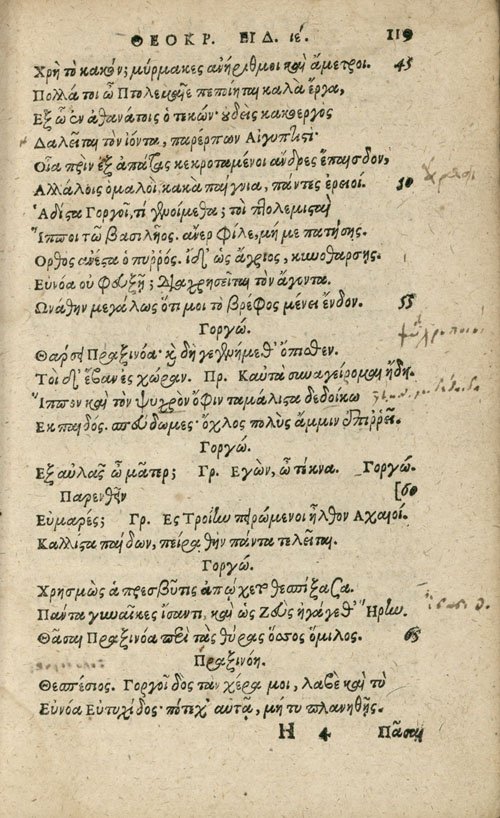 ΘΕΟΚΡ. ΕΙΔ. ιέ. 119
Χρὴ τὸ κακόν; μύρμακες ἀνήριθμοι καὶ ἄμετροι. 45
Πολλά τοι ὦ Πτολεμαῖε πεποίηται καλὰ ἔργα,
Εξ ὧ ἐν ἀθανάτοις ὁ τεκών· οὐδεὶς κακοεργὸς
Δαλεῖται τὸν ἰόντα, παρέρπων Αἰγυπτιστί·
Οἷα πρὶν ἐξ ἀπάτας κεκροταμένοι ἄνδρες ἔπαισδον,
Αλλάλοις ὁμαλοὶ κακὰ παίγνια, πάντες ἐρειοί. 50
Ἁδίστα Γοργοῖ, τί γενοίμεθα; τοὶ πτολεμισταὶ
Ἵπποι τῶ βασιλῆος. ἄνερ φίλε, μή με πατήσῃς.
Ορθὸς ἀνέστα ὁ πυρρός. ἰδ' ὡς ἄγριος, κυνοθαρσής.
Εὐνόα οὐ φευξῇ; διαχρησεῖται τὸν ἄγοντα.
Ωνάθην μεγάλως ὅτι μοι τὸ βρέφος μένει ἔνδον. 55
Γοργώ.
Θάρσει Πραξινόα· κ̀ δὴ γεγενήμεθ' ὄπισθεν.
Τοὶ δ' ἔβαν ἐς χώραν. Πρ. Καὐτὰ συναγείρομαι ἤδη.
Ἵππον καὶ τὸν ψυχρὸν ὄφιν ταμάλιστα δεδοίκω
Εκ παιδός. σπεύδωμες· ὄχλος πολὺς ἄμμιν ἐπιρρεῖ.
Γοργώ.
Εξ αὐλᾶς ὦ μᾶτερ; Γρ. Εγὼν, ὦ τέκνα. Γοργώ.
Παρενθεῖν [60
Εὐμαρές; Γρ. Ες Τροίην πειρώμενοι ἦλθον Αχαιοί.
Κάλλιστα παίδων, πείρᾳ θην πάντα τελεῖται.
Γοργώ.
Χρησμὼς ἁ πρεσβῦτις ἀπῴχετο θεσπίξασα.
Πάντα γυναῖκες ἴσαντι, καὶ ὡς Ζεὺς ἠγάγεθ' Ἥρην.
Θᾶσαι Πραξινόα περὶ τὰς θύρας ὅσσος ὅμιλος. 65
Πραξινόη.
Θεσπέσιος. Γοργοῖ δὸς τὰν χέρα μοι, λάβε καὶ τὺ
Εὐνόα Εὐτυχίδος· πότεχ' αὐτᾷ, μή τυ πλανηθῇς.
Η 4 Πᾶσαι